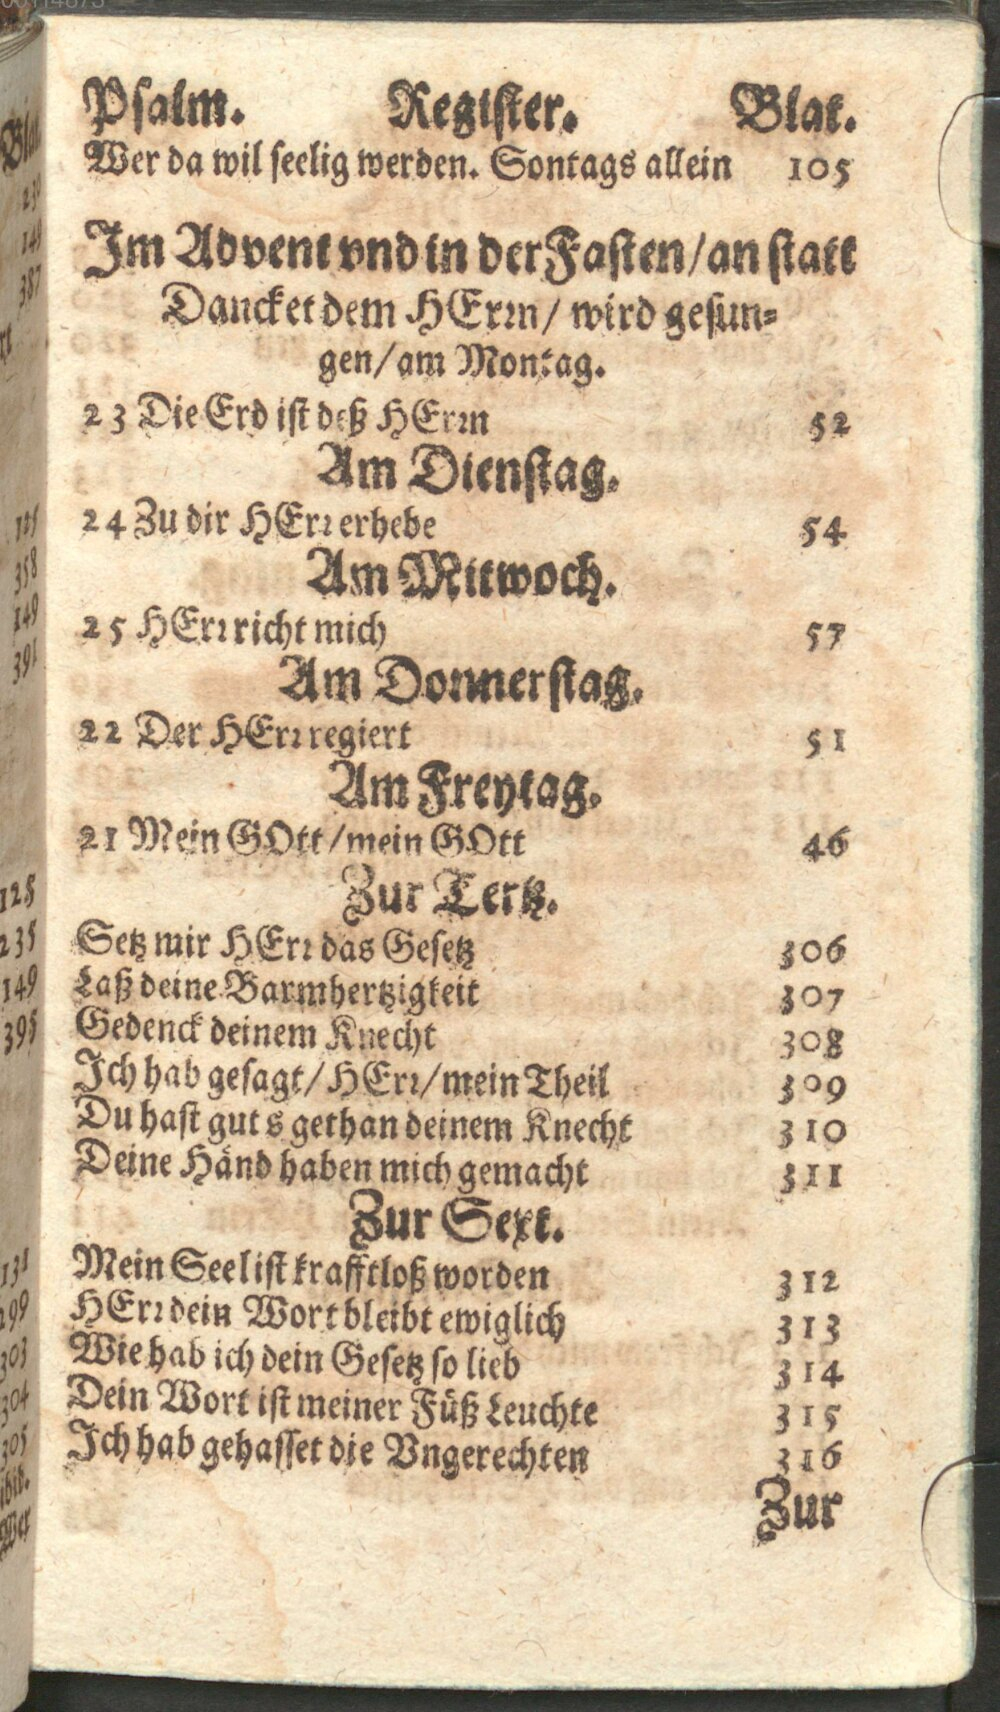 Psalm. Register. Blat.
Wer da wil seelig werden. Sontags allein 105
Im Advent vnd in der Fasten/an statt
Dancket dem HErꝛn/ wird gesun⸗
gen/am Montag.
23 Die Erd ist deß HErꝛn 52
Am Dienstag.
24 Zu dir HErꝛ erhebe 54
Am Mittwoch.
25 HErꝛ richt mich 57
Am Donnerstag.
22 Der HErꝛ regiert 51
Am Freytag.
21 Mein GOtt/mein GOtt 46
Zur Tertz.
Setz mir HErꝛ das Gesetz 306
Laß deine Barmhertzigkeit 307
Gedenck deinem Knecht 308
Ich hab gesagt/HErꝛ/mein Theil 309
Du hast guts gethan deinem Knecht 310
Deine Händ haben mich gemacht 311
Zur Sext.
Mein Seel ist krafftloß worden 312
HErꝛ dein Wort bleibt ewiglich 313
Wie hab ich dein Gesetz so lieb 314
Dein Wort ist meiner Füß Leuchte 315
Ich hab gehasset die Vngerechten 316
Zur